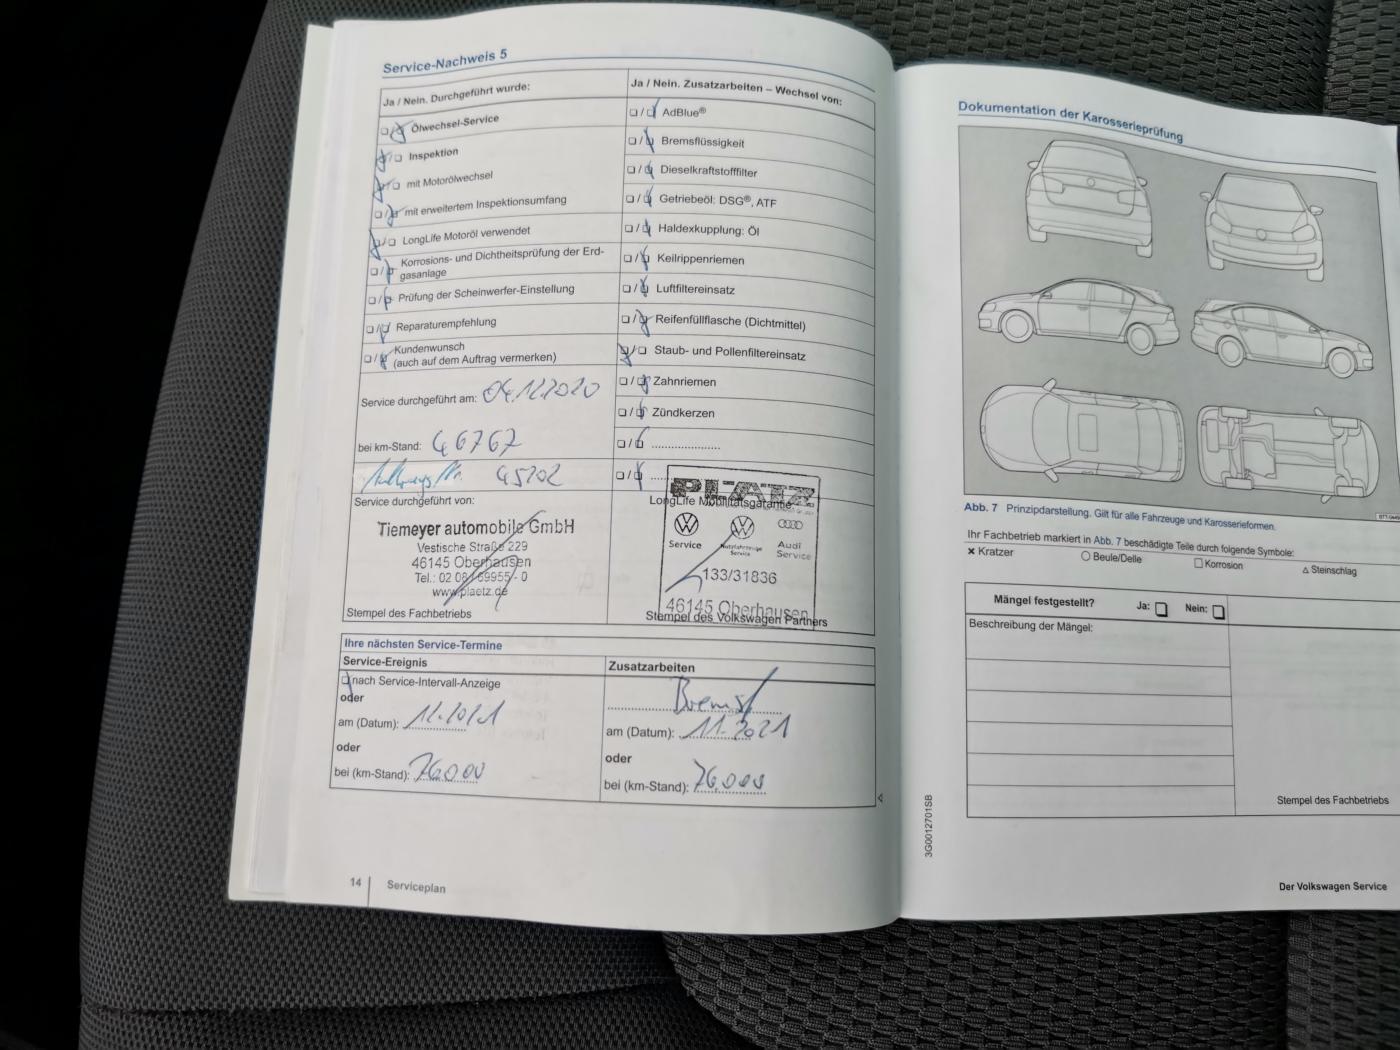 Service-Nachweis 5
Ja / Nein. Durchgeführt wurde:
Ölwechsel-Service
Inspektion
mit Motorölwechsel
mit erweitertem Inspektionsumfang
LongLife Motoröl verwendet
Korrosions- und Dichtheitsprüfung der Erd-
gasanlage
Prüfung der Scheinwerfer-Einstellung
Reparaturempfehlung
Kundenwunsch
(auch auf dem Auftrag vermerken)
Service durchgeführt am: 04.12.2020
bei km-Stand: 46767
45202
Service durchgeführt von:
Tiemeyer automobile GmbH
Vestische Straße 229
46145 Oberhausen
Tel.: 02 08 / 69955 - 0
www.plaetz.de
Stempel des Fachbetriebs
Ja / Nein. Zusatzarbeiten – Wechsel von:
AdBlue®
Bremsflüssigkeit
Dieselkraftstofffilter
Getriebeöl: DSG®, ATF
Haldexkupplung: Öl
Keilrippenriemen
Luftfiltereinsatz
Reifenfüllflasche (Dichtmittel)
Staub- und Pollenfiltereinsatz
Zahnriemen
Zündkerzen
LongLife Mobilitätsgarantie
Service
Nutzfahrzeuge
Service
Audi
Service
133/31836
46145 Oberhausen
Stempel des Volkswagen Partners
Ihre nächsten Service-Termine
Service-Ereignis
nach Service-Intervall-Anzeige
oder
am (Datum): 12.2021
oder
bei (km-Stand): 76.000
Zusatzarbeiten
Bremsf
am (Datum): 11.2021
oder
bei (km-Stand): 76.000
14
Serviceplan
Dokumentation der Karosserieprüfung
Abb. 7 Prinzipdarstellung. Gilt für alle Fahrzeuge und Karosserieformen.
Ihr Fachbetrieb markiert in Abb. 7 beschädigte Teile durch folgende Symbole:
× Kratzer ○ Beule/Delle □ Korrosion △ Steinschlag
Mängel festgestellt? Ja: Nein:
Beschreibung der Mängel:
Stempel des Fachbetriebs
3G0012701SB
Der Volkswagen Service